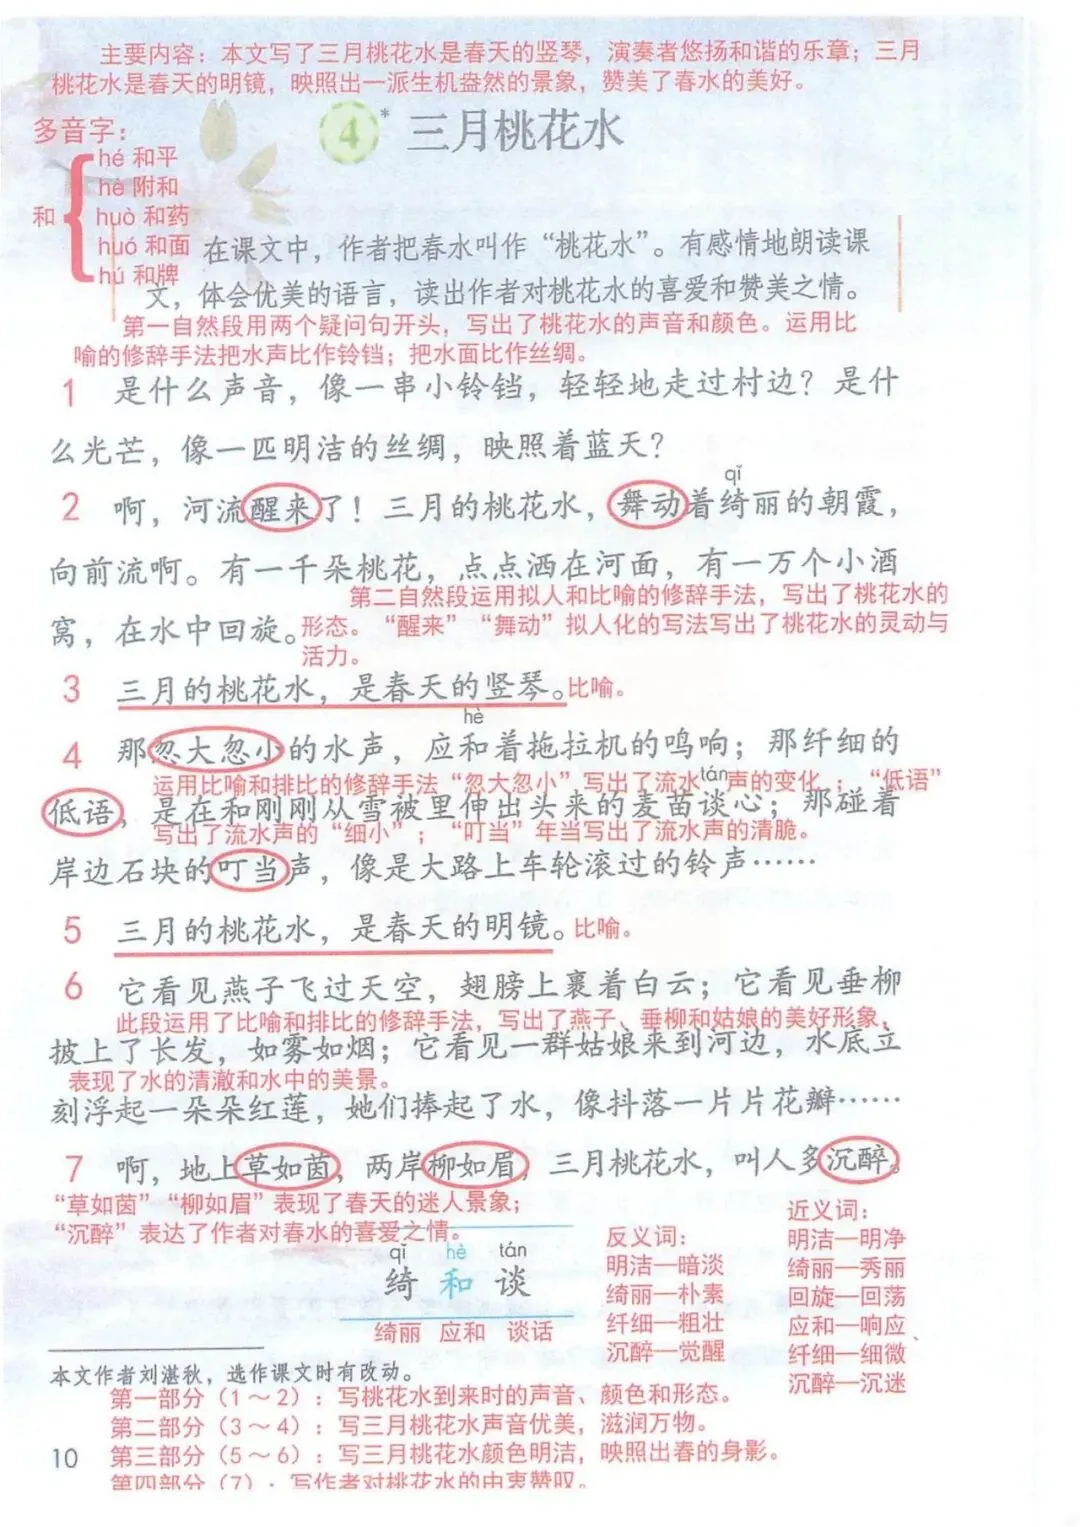 主要内容：本文写了三月桃花水是春天的竖琴，演奏者悠扬和谐的乐章；三月
桃花水是春天的明镜，映照出一派生机盎然的景象，赞美了春水的美好。
4* 三月桃花水
多音字：
和
hé 和平
hè 附和
huò 和药
huó 和面
hú 和牌
在课文中，作者把春水叫作“桃花水”。有感情地朗读课
文，体会优美的语言，读出作者对桃花水的喜爱和赞美之情。
第一自然段用两个疑问句开头，写出了桃花水的声音和颜色。运用比
喻的修辞手法把水声比作铃铛；把水面比作丝绸。
1 是什么声音，像一串小铃铛，轻轻地走过村边？是什
么光芒，像一匹明洁的丝绸，映照着蓝天？
qǐ
2 啊，河流醒来了！三月的桃花水，舞动着绮丽的朝霞，
向前流啊。有一千朵桃花，点点洒在河面，有一万个小酒
第二自然段运用拟人和比喻的修辞手法，写出了桃花水的
窝，在水中回旋。
形态。“醒来”“舞动”拟人化的写法写出了桃花水的灵动与
活力。
3 三月的桃花水，是春天的竖琴。比喻。
hè
4 那忽大忽小的水声，应和着拖拉机的鸣响；那纤细的
运用比喻和排比的修辞手法“忽大忽小”写出了流水声的变化；“低语”
tán
低语，是在和刚刚从雪被里伸出头来的麦苗谈心；那碰着
写出了流水声的“细小”；“叮当”年当写出了流水声的清脆。
岸边石块的叮当声，像是大路上车轮滚过的铃声……
5 三月的桃花水，是春天的明镜。比喻。
6 它看见燕子飞过天空，翅膀上裹着白云；它看见垂柳
此段运用了比喻和排比的修辞手法，写出了燕子、垂柳和姑娘的美好形象，
披上了长发，如雾如烟；它看见一群姑娘来到河边，水底立
表现了水的清澈和水中的美景。
刻浮起一朵朵红莲，她们捧起了水，像抖落一片片花瓣……
7 啊，地上草如茵，两岸柳如眉，三月桃花水，叫人多沉醉。
“草如茵”“柳如眉”表现了春天的迷人景象；
“沉醉”表达了作者对春水的喜爱之情。
qǐ hè tán
绮 和 谈
绮丽 应和 谈话
反义词：
明洁—暗淡
绮丽—朴素
纤细—粗壮
沉醉—觉醒
近义词：
明洁—明净
绮丽—秀丽
回旋—回荡
应和—响应
纤细—细微
沉醉—沉迷
本文作者刘湛秋，选作课文时有改动。
第一部分（1～2）：写桃花水到来时的声音、颜色和形态。
第二部分（3～4）：写三月桃花水声音优美，滋润万物。
第三部分（5～6）：写三月桃花水颜色明洁，映照出春的身影。
第四部分（7）：写作者对桃花水的由衷赞叹。
10